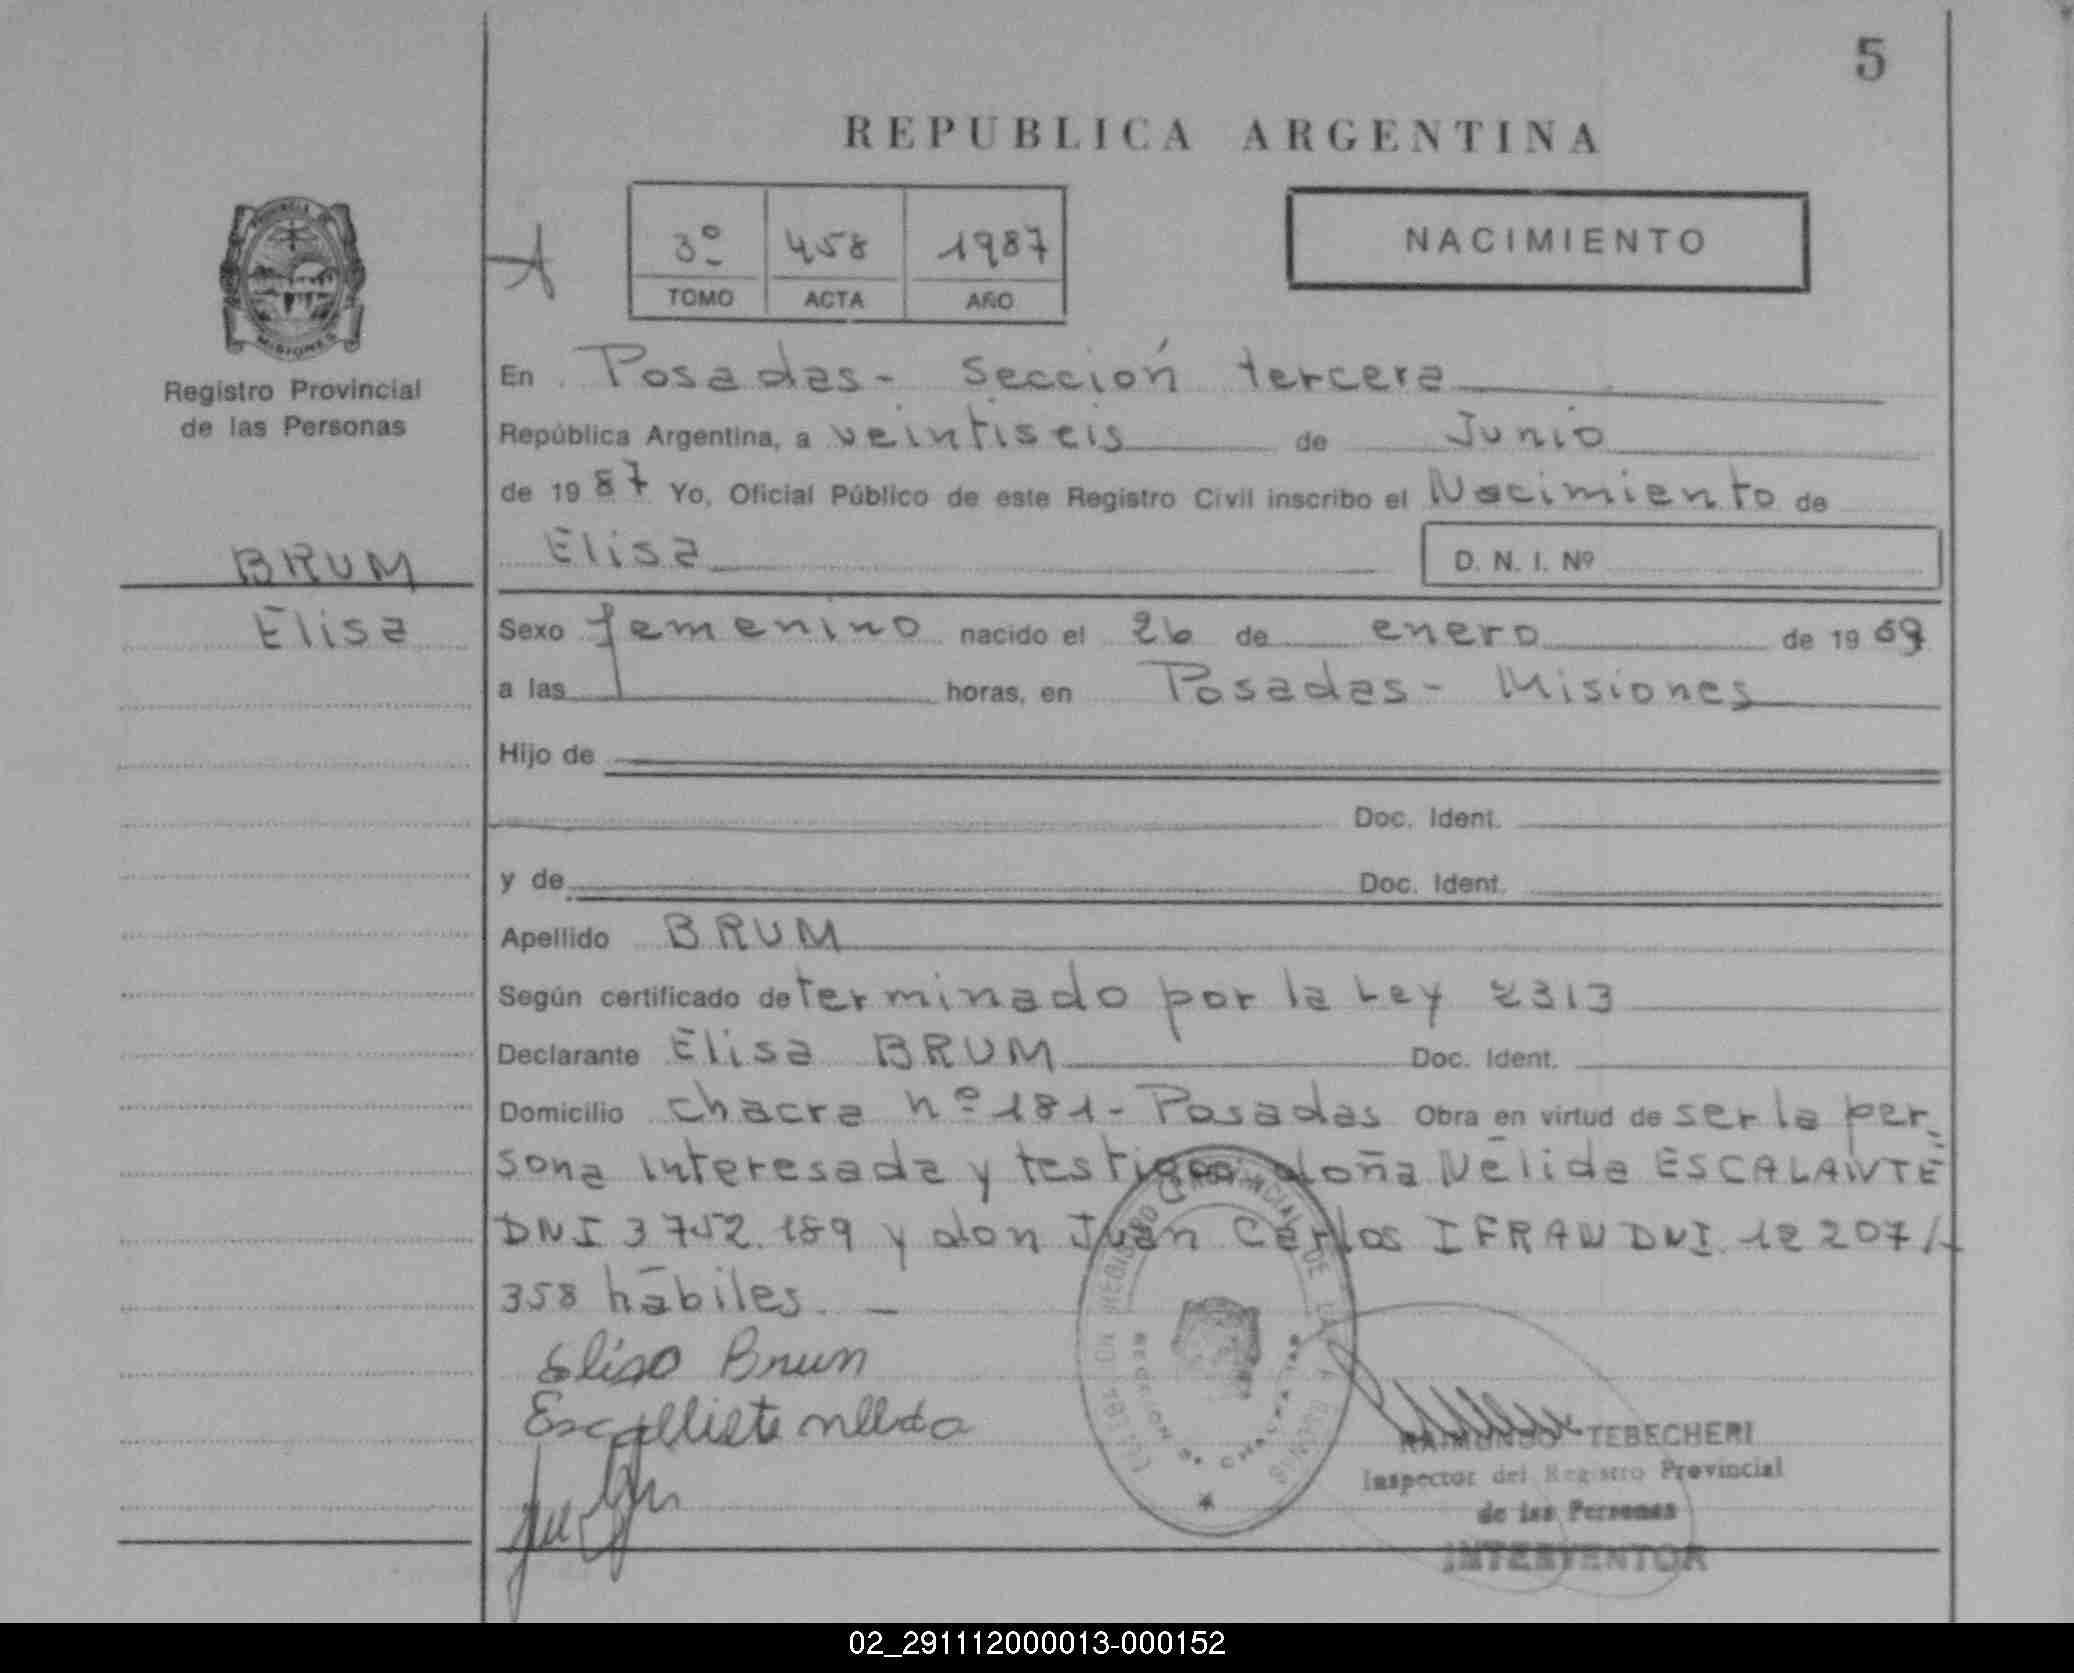 5
REPUBLICA ARGENTINA
3º 458 1987
TOMO ACTA AÑO
NACIMIENTO
PROVINCIA DE
MISIONES
Registro Provincial
de las Personas
BRUM
Elisa
En Posadas - Sección tercera
República Argentina, a veintiseis de Junio
de 1987 Yo, Oficial Público de este Registro Civil inscribo el Nacimiento de
Elisa D. N. I. Nº
Sexo femenino nacido el 26 de enero de 1969
a las horas, en Posadas - Misiones
Hijo de
Doc. Ident.
y de Doc. Ident.
Apellido BRUM
Según certificado determinado por la Ley 2313
Declarante Elisa BRUM Doc. Ident.
Domicilio chacra nº 181 - Posadas Obra en virtud de ser la per-
sona interesada y testigos doña Nélida ESCALANTE
DNI 3 752.189 y don Juan Carlos IFRAN DNI 12 207/
358 hábiles. -
Elisa Brum
RAIMUNDO TEBECHERI
Inspector del Registro Provincial
de las Personas
INTERVENTOR
02_291112000013-000152